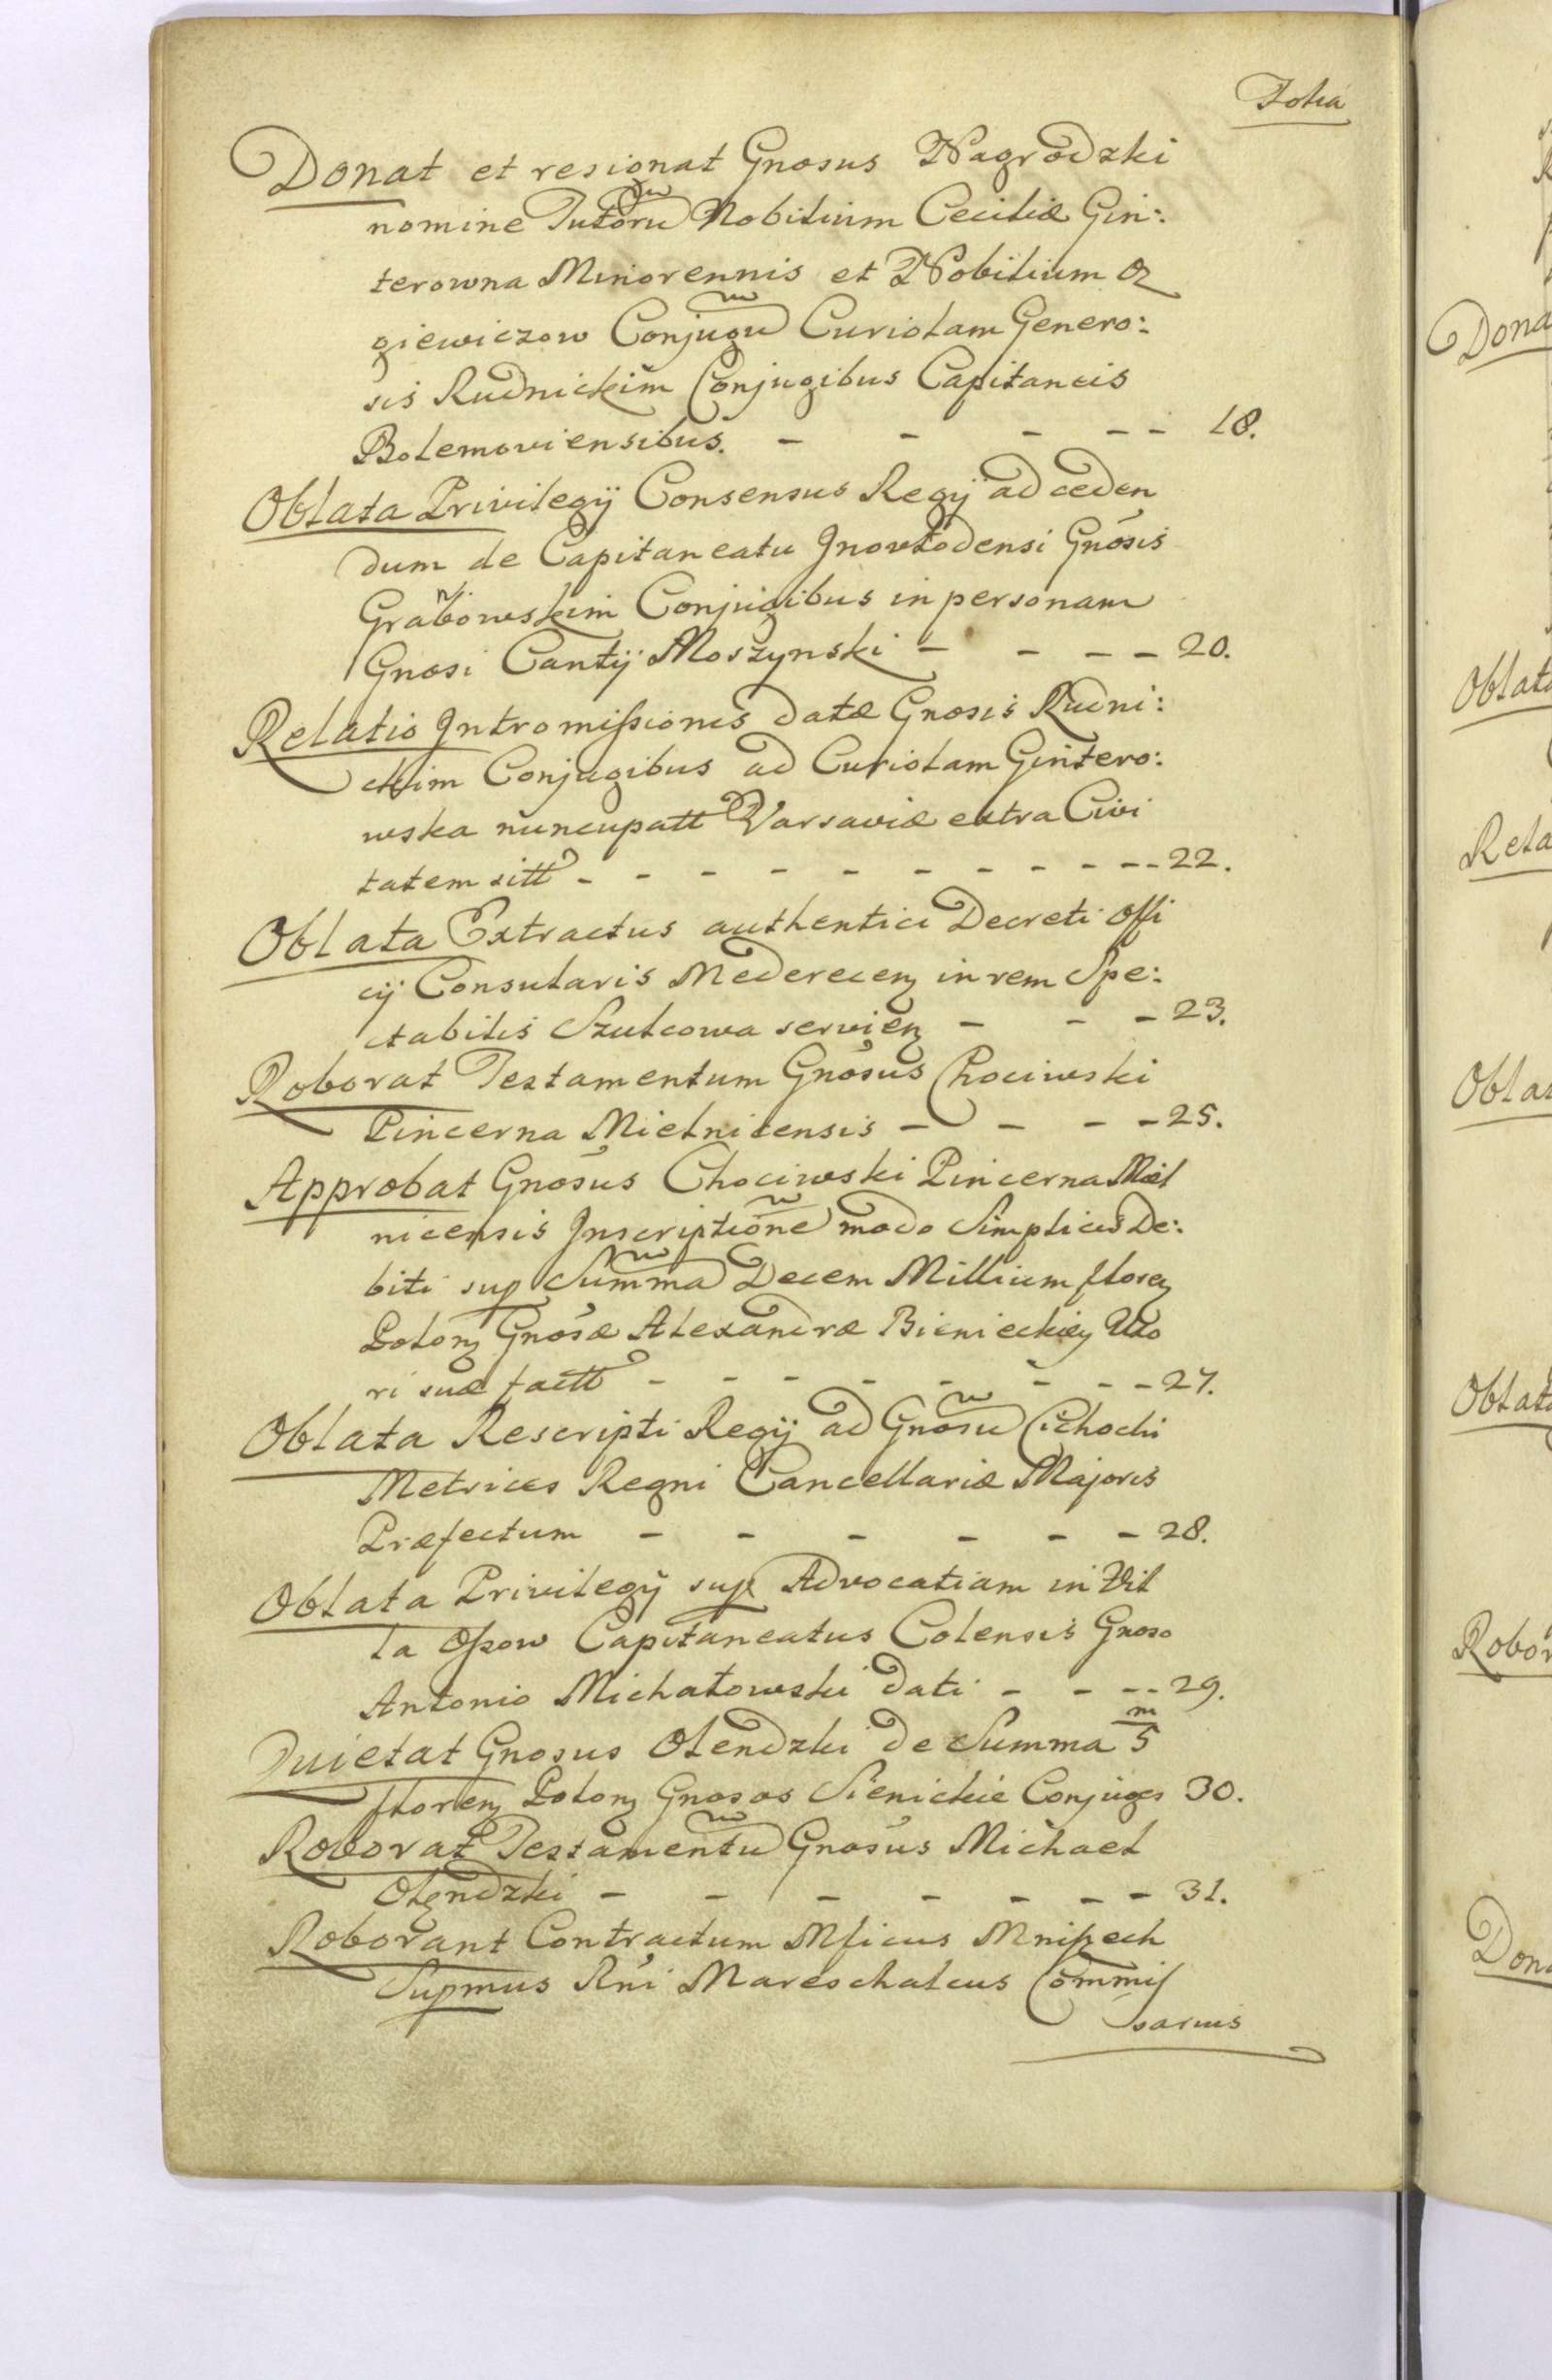 Folia
Donat et resignat Gnosus Nagrodzki
nomine Tutorũ Nobilium Ceciliæ Gin:
terowna Minorennis et Nobilium O
giewiczow Conjugũ Curiolam Genero:
sis Rudnickim Conjugibus Capitaneis
Bolemoviensibus. - - - - - 18.
Oblata Privilegij Consensus Regij ad ceden
dum de Capitaneatu Jnovłodensi Gnosis
Grabowskim Conjugibus in personam
Gnosi Cantij Moszynski - - - - 20.
Relatio Jntromissionis datæ Gnosis Rudni:
ckim Conjugibus ad Curiolam Gintero:
wska nuncupatt Varsaviæ extra Civi
tatem sitt - - - - - - - - - - 22.
Oblata Extractus authentici Decreti Offi
cij Consularis Mederecen in rem Spe:
ctabilis Szulcowa servien - - - 23.
Roborat Testamentum Gnosus Chociwski
Pincerna Mielnicensis - - - - 25.
Approbat Gnosus Chociwski Pincerna Miel
nicensis Jnscriptionẽ modo Simplicis De:
biti sup Summã Decem Millium floren
Polon Gnosæ Alexandræ Bienieckiey Uxo
ri suæ factt - - - - - - - - 27.
Oblata Rescripti Regij ad Gnosũ Cichocki
Metrices Regni Cancellariæ Majoris
Præfectum - - - - - - 28.
Oblata Privilegij sup Advocatiam in Vil
la Ossow Capitaneatus Colensis Gnoso
Antonio Michałowski dati - - - - 29.
Quietat Gnosus Olendzki de Summa 5 m
floren Polon Gnosos Sienickie Conjuges 30.
Roborat Testamentũ Gnosus Michael
Olendzki - - - - - - - 31.
Roborant Contractum Mficus Mniszech
Supmus Rni Mareschalcus Commis
sarius
Dona
Oblata
Rela
Oblat
Oblata
Robor
Dona